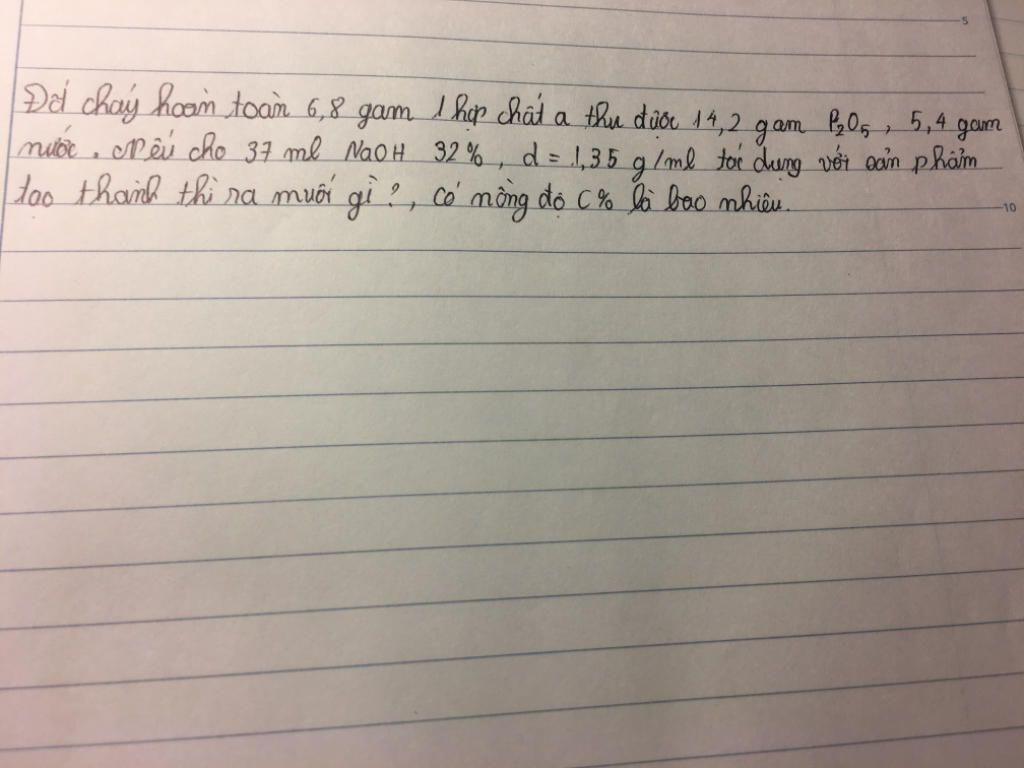 5
Đốt cháy hoàn toàn 6,8 gam 1 hợp chất a thu được 14,2 gam P₂O₅, 5,4 gam
nước. Nếu cho 37 ml NaOH 32%, d = 1,35 g/ml tác dụng với sản phẩm
tạo thành thì ra muối gì?, có nồng độ C% là bao nhiêu.
10